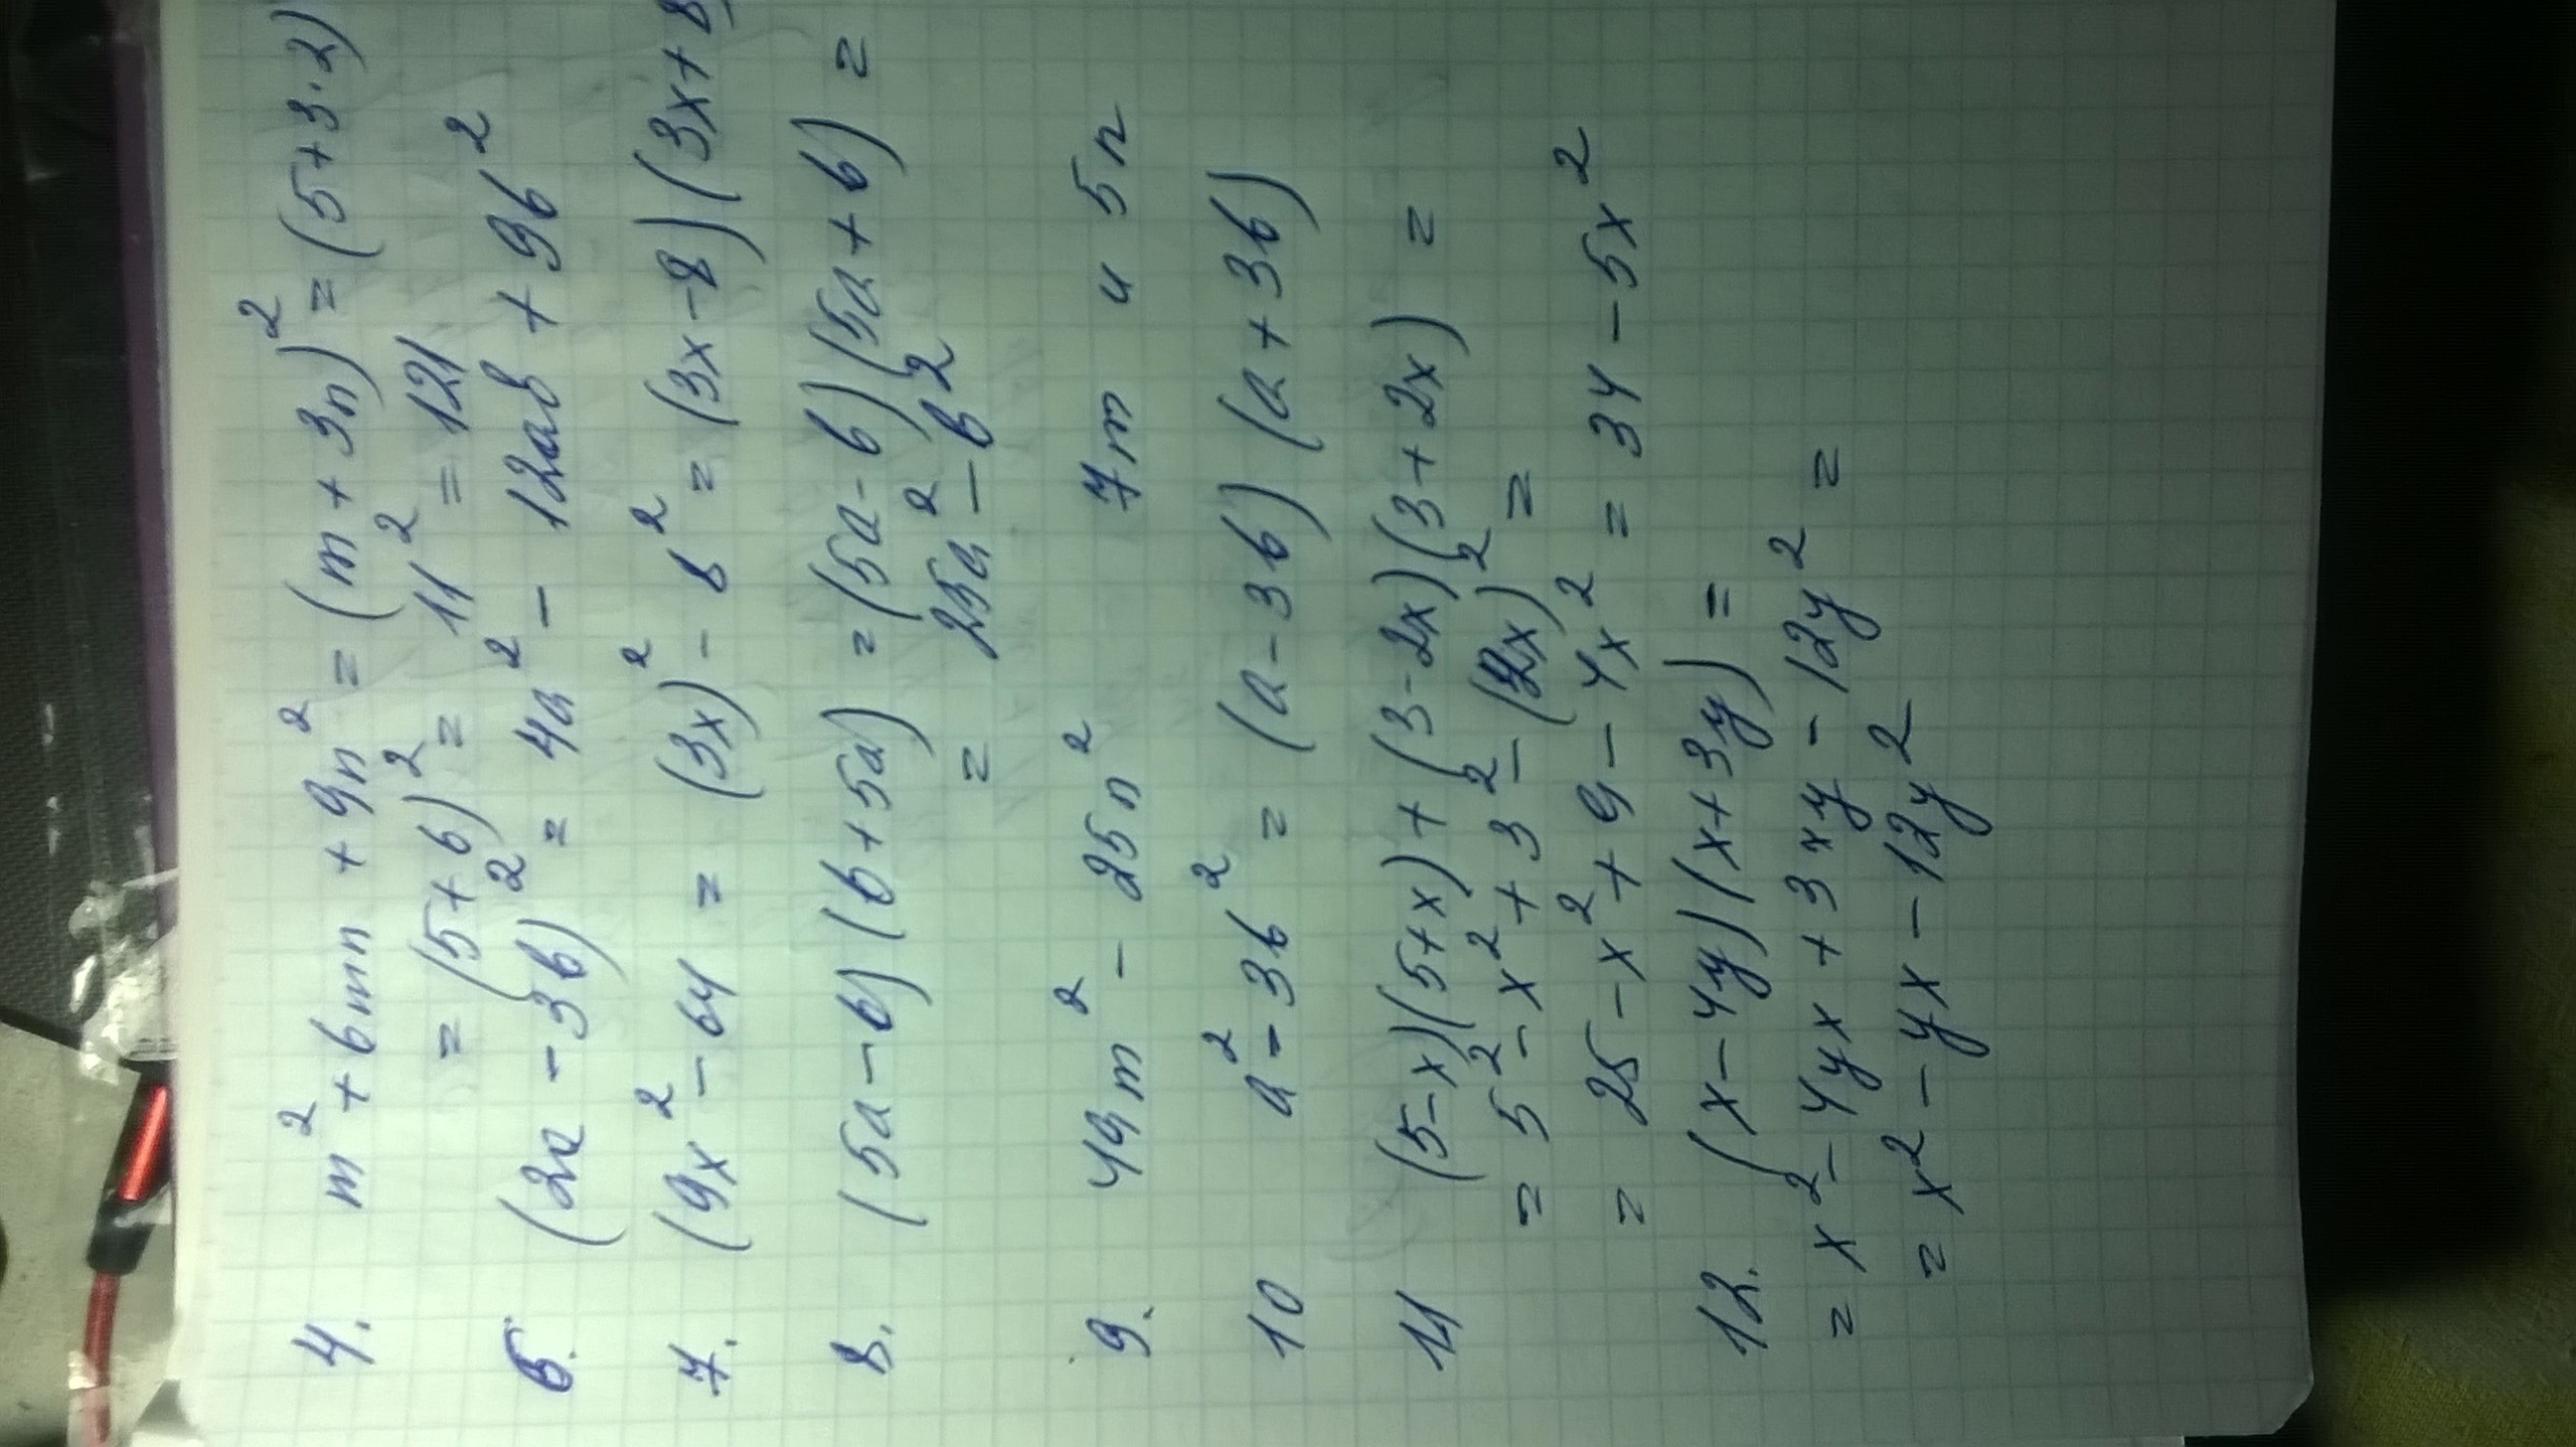 4. m² + 6mn + 9n² = (m + 3n)² = (5+3·2)
= (5+6)² = 11² = 121
6. (2a - 3b)² = 4a² - 12ab + 9b²
7. (9x² - 64 = (3x)² - 8² = (3x-8)(3x+8)
8. (5a-b)(b+5a) = (5a-b)(5a+b) =
= 25a² - b²
9. 49m² - 25n² 7m и 5n
10 a² - 3b² = (a-3b)(a+3b)
11 (5-x)(5+x) + (3-2x)(3+2x) =
= 5² - x² + 3² - (2x)² =
= 25 - x² + 9 - 4x² = 34 - 5x²
12. (x-4y)(x+3y) =
= x² - 4yx + 3xy - 12y² =
= x² - yx - 12y²